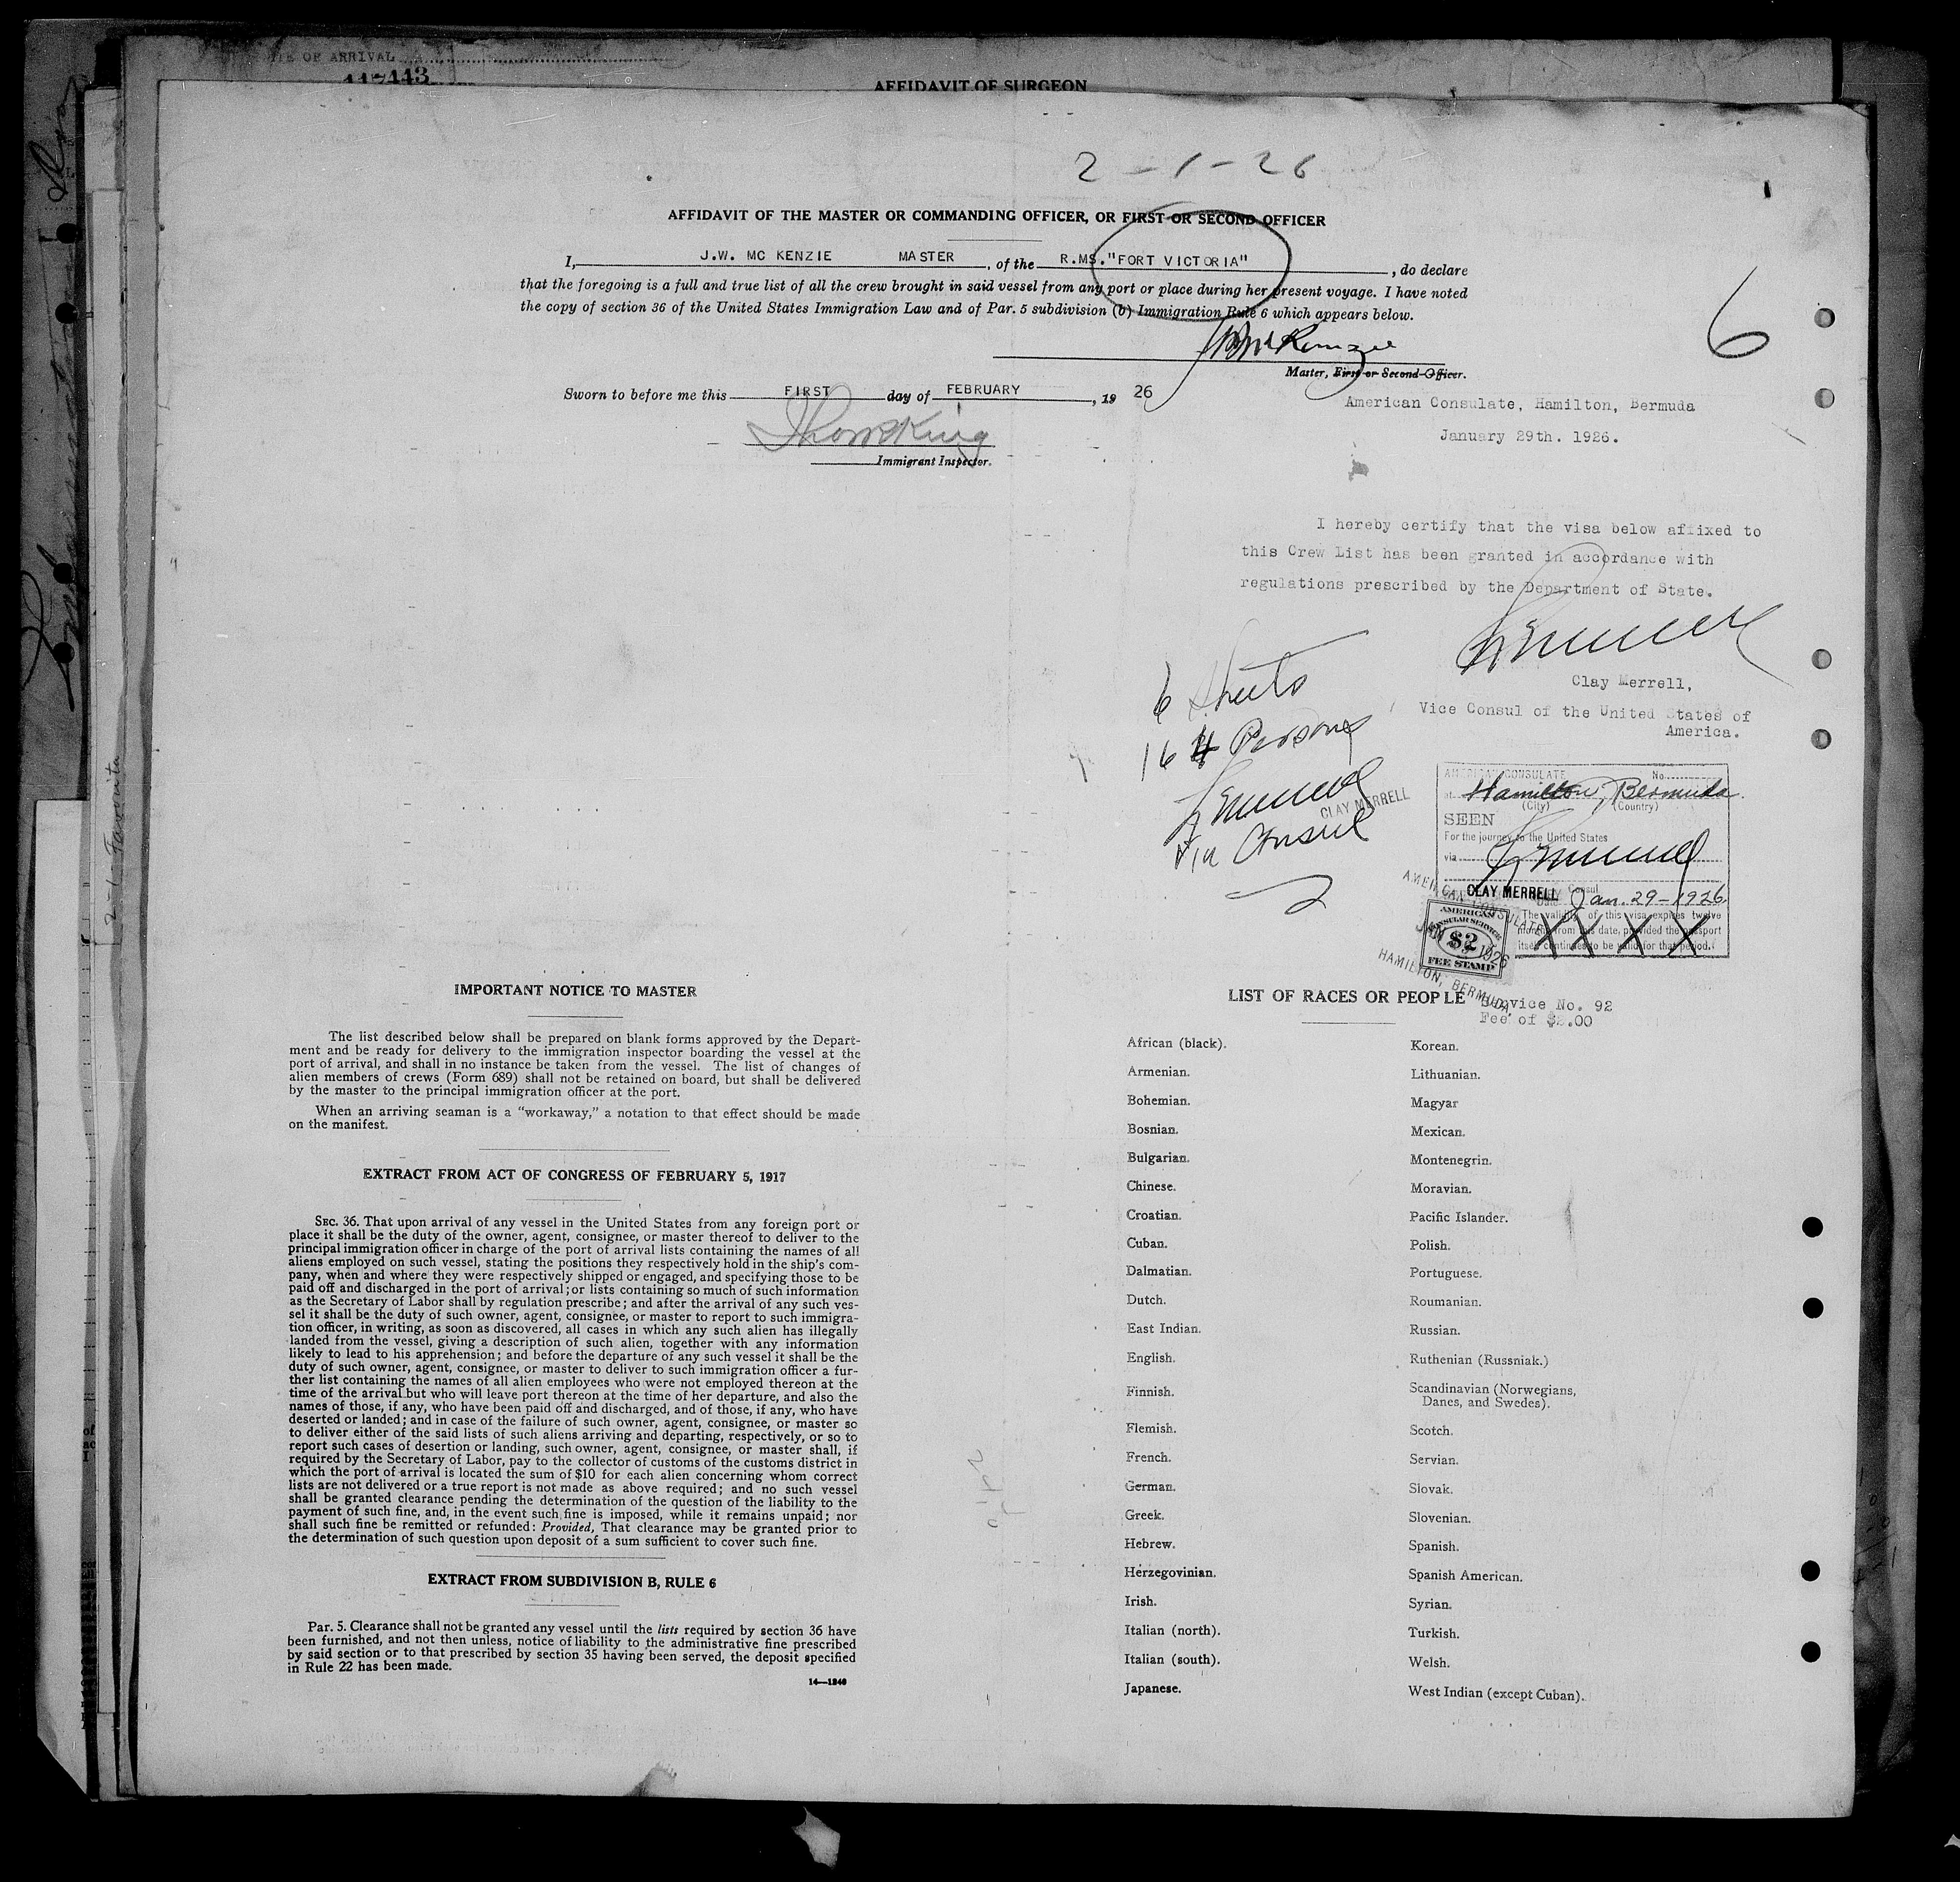 TE OF ARRIVAL
AFFIDAVIT OF SURGEON
2-1-26
AFFIDAVIT OF THE MASTER OR COMMANDING OFFICER, OR FIRST OR SECOND OFFICER
I, J.W. MC KENZIE MASTER, of the R.MS."FORT VICTORIA", do declare
that the foregoing is a full and true list of all the crew brought in said vessel from any port or place during her present voyage. I have noted
the copy of section 36 of the United States Immigration Law and of Par. 5 subdivision (b) Immigration Rule 6 which appears below.
6
JW McKenzie
Master, First or Second Officer.
Sworn to before me this FIRST day of FEBRUARY, 19 26
Immigrant Inspector.
American Consulate, Hamilton, Bermuda
January 29th. 1926.
I hereby certify that the visa below affixed to
this Crew List has been granted in accordance with
regulations prescribed by the Department of State.
Clay Merrell,
Vice Consul of the United States of
America.
6 Sheets
164 Persons
CLAY MERRELL
Vice Consul
AMERICAN CONSULATE No.
at Hamilton, Bermuda.
(City) (Country)
SEEN
For the journey to the United States
via
CLAY MERRELL Consul
Date Jan. 29-1926.
The validity of this visa expires twelve
months from this date, provided the passport
itself continues to be valid for that period.
XXXX
AMERICAN CONSULATE
JAN 29 1926
HAMILTON, BERMUDA
AMERICAN
CONSULAR SERVICE
$2
FEE STAMP
Service No. 92
Fee of $2.00
IMPORTANT NOTICE TO MASTER
The list described below shall be prepared on blank forms approved by the Depart-
ment and be ready for delivery to the immigration inspector boarding the vessel at the
port of arrival, and shall in no instance be taken from the vessel. The list of changes of
alien members of crews (Form 689) shall not be retained on board, but shall be delivered
by the master to the principal immigration officer at the port.
When an arriving seaman is a "workaway," a notation to that effect should be made
on the manifest.
EXTRACT FROM ACT OF CONGRESS OF FEBRUARY 5, 1917
SEC. 36. That upon arrival of any vessel in the United States from any foreign port or
place it shall be the duty of the owner, agent, consignee, or master thereof to deliver to the
principal immigration officer in charge of the port of arrival lists containing the names of all
aliens employed on such vessel, stating the positions they respectively hold in the ship's com-
pany, when and where they were respectively shipped or engaged, and specifying those to be
paid off and discharged in the port of arrival; or lists containing so much of such information
as the Secretary of Labor shall by regulation prescribe; and after the arrival of any such ves-
sel it shall be the duty of such owner, agent, consignee, or master to report to such immigra-
tion officer, in writing, as soon as discovered, all cases in which any such alien has illegally
landed from the vessel, giving a description of such alien, together with any information
likely to lead to his apprehension; and before the departure of any such vessel it shall be the
duty of such owner, agent, consignee, or master to deliver to such immigration officer a fur-
ther list containing the names of all alien employees who were not employed thereon at the
time of the arrival but who will leave port thereon at the time of her departure, and also the
names of those, if any, who have been paid off and discharged, and of those, if any, who have
deserted or landed; and in case of the failure of such owner, agent, consignee, or master so
to deliver either of the said lists of such aliens arriving and departing, respectively, or so to
report such cases of desertion or landing, such owner, agent, consignee, or master shall, if
required by the Secretary of Labor, pay to the collector of customs of the customs district in
which the port of arrival is located the sum of $10 for each alien concerning whom correct
lists are not delivered or a true report is not made as above required; and no such vessel
shall be granted clearance pending the determination of the question of the liability to the
payment of such fine, and, in the event such fine is imposed, while it remains unpaid; nor
shall such fine be remitted or refunded: Provided, That clearance may be granted prior to
the determination of such question upon deposit of a sum sufficient to cover such fine.
EXTRACT FROM SUBDIVISION B, RULE 6
Par. 5. Clearance shall not be granted any vessel until the lists required by section 36 have
been furnished, and not then unless, notice of liability to the administrative fine prescribed
by said section or to that prescribed by section 35 having been served, the deposit specified
in Rule 22 has been made.
14—1240
LIST OF RACES OR PEOPLE
African (black).
Armenian.
Bohemian.
Bosnian.
Bulgarian.
Chinese.
Croatian.
Cuban.
Dalmatian.
Dutch.
East Indian.
English.
Finnish.
Flemish.
French.
German.
Greek.
Hebrew.
Herzegovinian.
Irish.
Italian (north).
Italian (south).
Japanese.
Korean.
Lithuanian.
Magyar
Mexican.
Montenegrin.
Moravian.
Pacific Islander.
Polish.
Portuguese.
Roumanian.
Russian.
Ruthenian (Russniak.)
Scandinavian (Norwegians,
Danes, and Swedes).
Scotch.
Servian.
Slovak.
Slovenian.
Spanish.
Spanish American.
Syrian.
Turkish.
Welsh.
West Indian (except Cuban).